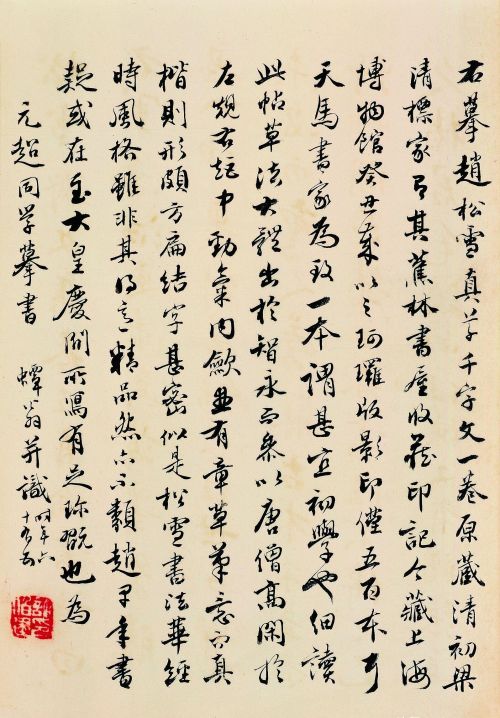 右摹趙松雪真草千字文一卷原藏清初梁
清標家有其蕉林書屋收藏印記今藏上海
博物館癸丑歲以之珂羅版影印僅五百本
天馬書家為致一本謂甚宜初學也細讀
此帖草法大體出於智永而參以唐僧高閑於
左規右矩中勁氣內斂並有章草筆意而真
楷則形頗方扁結字甚密似是松雪書法華經
時風格雖非其得意精品然亦不類趙早年書
疑或在至大皇慶間所寫有足珍翫也為
元超同学摹書 蟫翁并識 時年六
十有五